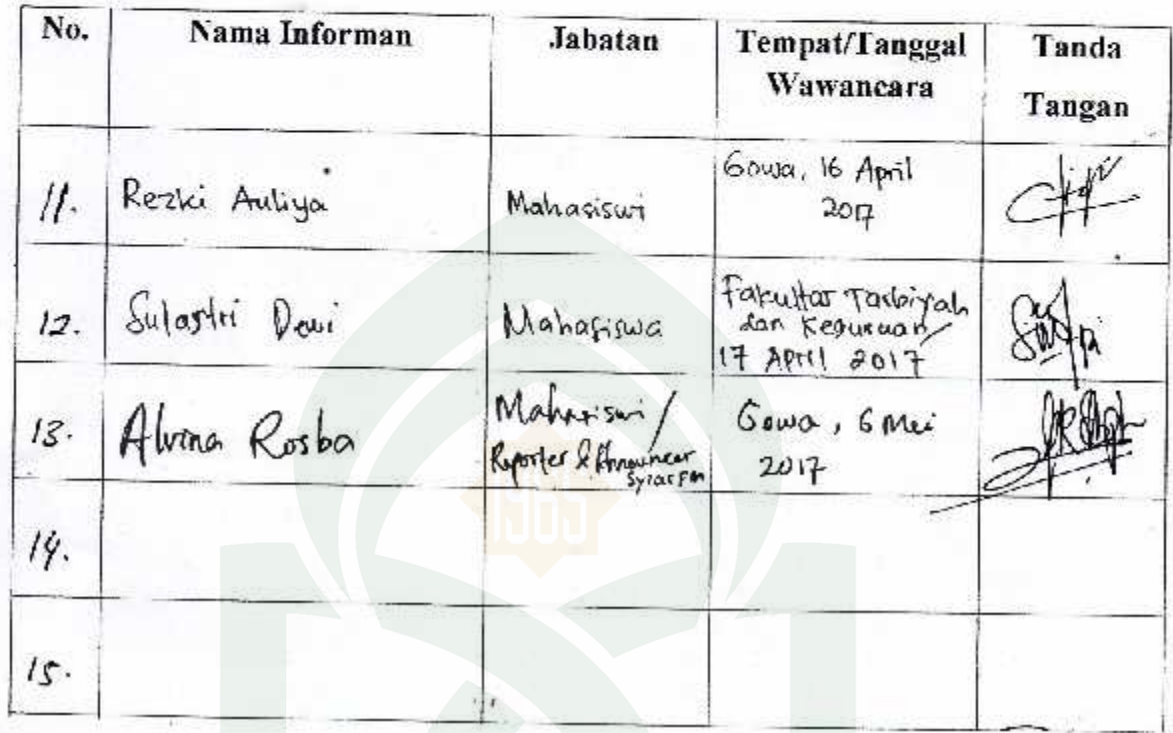 No. Nama Informan Jabatan Tempat/Tanggal Tanda
Wawancara Tangan
11. Rezki Auliya Mahasiswi Gowa, 16 April
2017
12. Sulastri Dewi Mahasiswa Fakultas Tarbiyah
dan Keguruan/
17 April 2017
13. Alvina Rosba Mahasiswi / Gowa, 6 Mei
Reporter & Announcer 2017
Syiar FM
1965
14.
15.